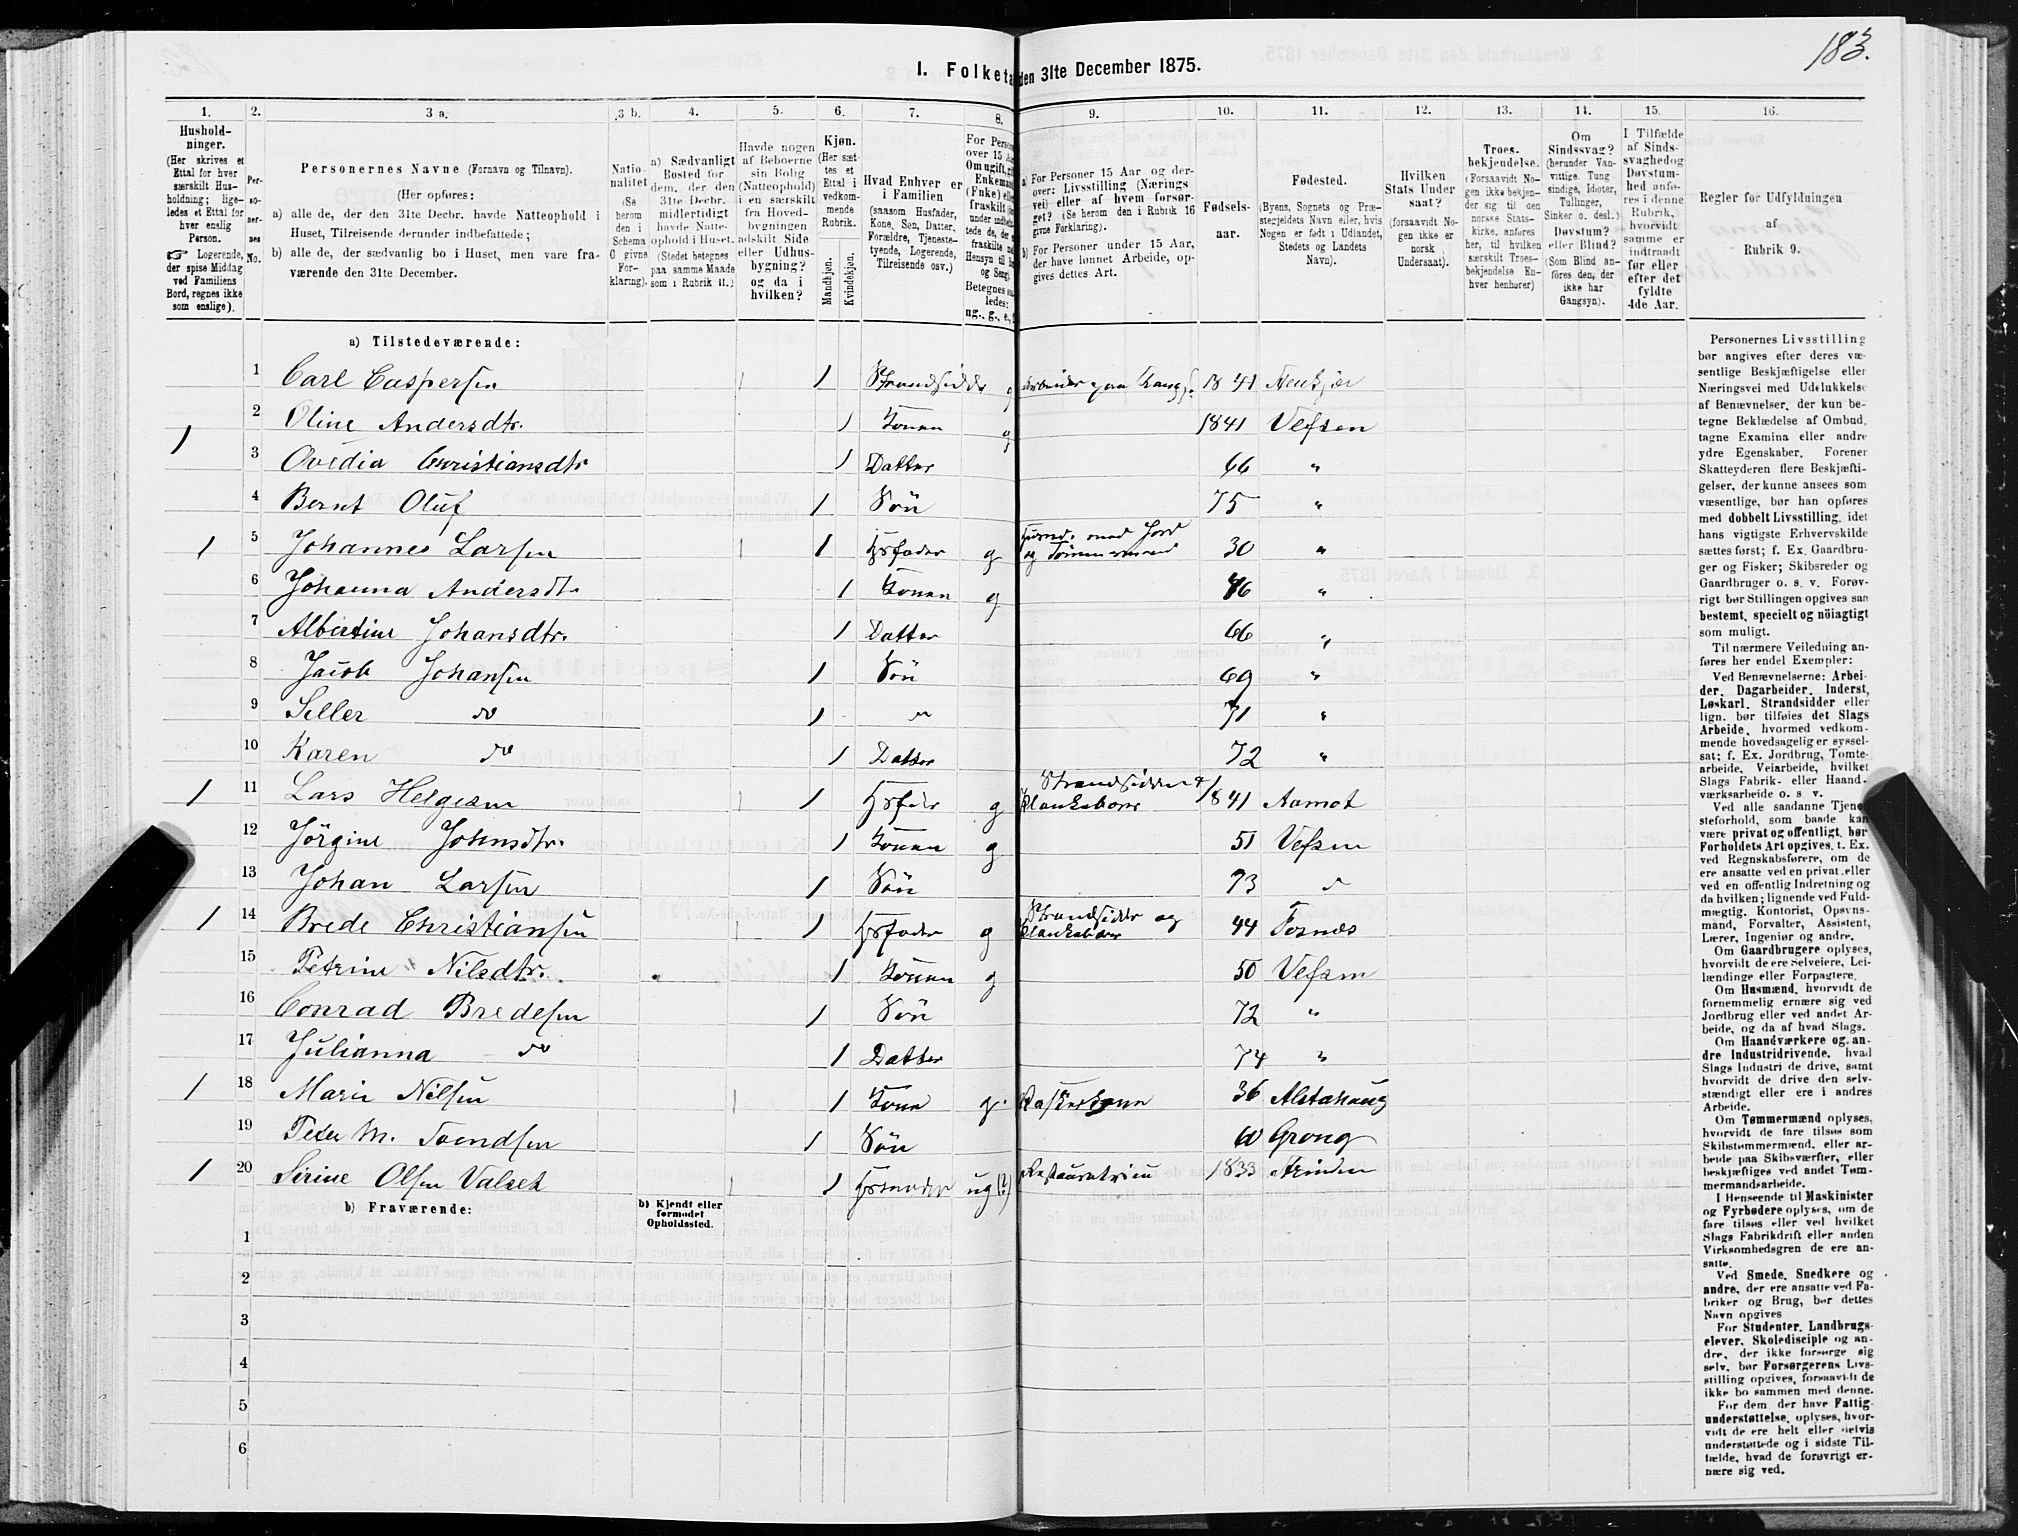 183.
I. Folketa den 31te December 1875.
1. 2. 3 a. 3 b. 4. 5. 6. 7. 8. 9. 10. 11. 12. 13. 14. 15. 16.
Hushold-
ninger.
(Her skrives et
Ettal for hver
særskilt Hus-
holdning; lige-
ledes et Ettal for
hver enslig
Person.
☞ Logerende,
der spise Middag
ved Familiens
Bord, regnes ikke
som enslige).
Per-
so-
ner-
nes
No.
Personernes Navne (Fornavn og Tilnavn).
(Her opføres:
a) alle de, der den 31te Decbr. havde Natteophold i
Huset, Tilreisende derunder indbefattede;
b) alle de, der sædvanlig bo i Huset, men vare fra-
værende den 31te December.
Natio-
nalitet
(Se
herom
den i
Schema
O givne
For-
klaring).
a) Sædvanligt
Bosted for
dem, der den
31te Decbr.
midlertidigt
havde Natte-
ophold i Huset.
(Stedet betegnes
paa samme Maade
som i Rubrik 11.)
Havde nogen
af Beboerne
sin Bolig
(Natteophold)
i en særskilt
fra Hoved-
bygningen
adskilt Side
eller Udhus-
bygning?
og da i
hvilken?
Kjøn.
(Her sæt-
tes et
Ettal i
vedkom-
mende
Rubrik.
Mandkjøn.
Kvindekjøn.
Hvad Enhver er
i Familien
(saasom Husfader,
Kone, Søn, Datter,
Forældre, Tjeneste-
tyende, Logerende,
Tilreisende osv.)
For Person
over 15 Aa
Om ugift, g
Enkeman
(Fnke) elle
fraskilt (
under indbe
tede de, de
fraskilte m
Hensyn til
og Seng
Betegnes sa
ledes:
ug., g., e, f
a) For Personer 15 Aar og der-
over: Livsstilling (Nærings
vei) eller af hvem forsør-
get? (Se herom den i Rubrik 16
givne Forklaring).
b) For Personer under 15 Aar,
der have lønnet Arbeide, op-
gives dettes Art.
Fødsels-
aar.
Fødested.
(Byens, Sognets og Præ-
stegjeldets Navn eller, hvis
Nogen er født i Udlandet,
Stedets og Landets
Navn).
Hvilken
Stats Under
saat?
(forsaavidt No-
gen ikke er
norsk
Undersaat).
Troes-
bekjendelse.
(Forsaavidt No-
gen ikke bekjen-
der sig til den
norske Stats-
kirke, anføres
her, til hvilken
særskilt Troes-
bekjendelse En-
hver henhører)
Om
Sindssvag?
(herunder Van-
vittige, Tung
sindige, Idioter,
Tullinger,
Sinker o. desl.)
Døvstum?
eller Blind?
(Som Blind an-
føres den, der
ikke har
Gangsyn).
I Tilfælde
af Sinds-
svaghedog
Døvstum-
hed anfø-
res i denne
Rubrik,
hvorvidt
samme er
indtraadt
før eller
efter det
fyldte
4de Aar.
Regler for Udfyldningen
af
Rubrik 9.
a) Tilstedeværende:
1 Carl Caspersen 1 Strandsidder g Arbeider paa 1841
1 2 Oline Andersdtr. 1 Konen g 1841 Vefsen
3 Ovedia Christiansdtr 1 Datter 66 "
4 Bernt Oluf 1 Søn 75 "
1 5 Johannes Larsen 1 Hsfader g Husmd. med Jord og Tømmermand 30 "
6 Johanna Andersdt. 1 Konen g 46 "
7 Albertine Johansdtr. 1 Datter 66 "
8 Jacob Johansen 1 Søn 69 "
9 Seller do 1 " 71 "
10 Karen do 1 Datter 72 "
1 11 Lars Helgesen 1 Hsfader g Strandsidder & Plankebærer 1841 Aamot
12 Jörgine Johnsdtr. 1 Konen g 51 Vefsen
13 Johan Larsen 1 Søn 73 "
1 14 Brede Christiansen 1 Hsfader g Strandsidder og Plankebærer 44 Fosnæs
15 Petrine Nilsdtr. 1 Konen g 50 Vefsen
16 Conrad Bredesen 1 Søn 72 "
17 Julianna do 1 Datter 74 "
1 18 Marie Nilsen 1 Kone g. 36 Alstahaug
19 Peter M. Svendsen 1 Søn 60 Grong
1 20 Sirine Olsen Valset 1 Hsmoder ug (?) Restauratrice 1833 Strinden
b) Fraværende:
b) Kjendt eller
formodet
Opholdssted.
1
2
3
4
5
6
Personernes Livsstilling
bør angives efter deres væ-
sentlige Beskjæftigelse eller
Næringsvei med Udelukkelse
af Benævnelser, der kun be-
tegne Beklædelse af Ombud,
tagne Examina eller andre
ydre Egenskaber. Forener
Skatteyderen flere Beskjæfti-
gelser, der kunne ansees som
væsentlige, bør han opføres
med dobbelt Livsstilling, idet
hans vigtigste Erhvervskilde
sættes først; f. Ex. Gaardbru-
ger og Fisker; Skibsreder og
Gaardbruger o. s. v. Forøv-
rigt bør Stillingen opgives saa
bestemt, specielt og nöiagtigt
som muligt.
Til nærmere Veiledning an-
føres her endel Exempler:
Ved Benævnelserne: Arbei-
der, Dagarbeider, Inderst,
Løskarl, Strandsidder eller
lign. bør tilføies det Slags
Arbeide, hvormed vedkom-
mende hovedsagelig er syssel-
sat; f. Ex. Jordbrug, Tomte-
arbeide, Veiarbeide, hvilket
Slags Fabrik- eller Haand-
værksarbeide o. s. v.
Ved alle saadanne Tjene-
steforhold, som baade kan
være privat og offentligt, bør
Forholdets Art opgives, t. Ex.
ved Regnskabsførere, om de
ere ansatte ved en privat eller
ved en offentlig Indretning og
da hvilken; lignende ved Fuld-
mægtig, Kontorist, Opsyns-
mand, Forvalter, Assistent,
Lærer, Ingeniør og andre.
Om Gaardbrugere oplyses,
hvorvidt de ere Selveiere, Lei-
lændinge eller Forpagtere.
Om Husmænd, hvorvidt de
fornemmelig ernære sig ved
Jordbrug eller ved andet Ar-
beide, og da af hvad Slags.
Om Haandværkere og an-
dre Industridrivende, hvad
Slags Industri de drive, samt
hvorvidt de drive den selv-
stændigt eller ere i andres
Arbeide.
Om Tømmermænd oplyses,
hvorvidt de fare tilsøs som
Skibstømmermænd, eller ar-
beide paa Skibsværfter, eller
beskjæftiges ved andet Tøm-
mermandsarbeide.
I Henseende til Maskinister
og Fyrbødere oplyses, om de
fare tilsøs eller ved hvilket
Slags Fabrikdrift eller anden
Virksomhedsgren de ere an-
satte.
Ved Smede, Snedkere og
andre, der ere ansatte ved Fa-
briker og Brug, bør dettes
Navn opgives
For Studenter, Landbrugs-
elever, Skoledisciple og an-
dre, der ikke forsørge sig
selv, bør Forsørgerens Livs-
stilling opgives, forsaavidt de
ikke bo sammen med denne.
For dem der have Fattig-
understøttelse, oplyses, hvor-
vidt de ere helt eller delvis
understøttede og i sidste Til-
fælde, hvad de forøvrigt er-
nære sig ved.